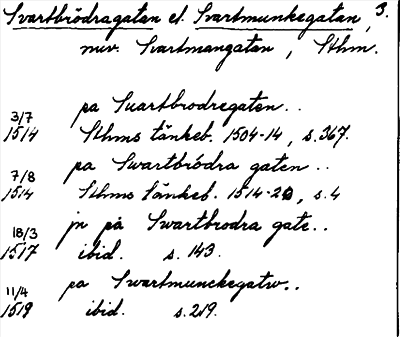 Svartbrödragatan el. Svartmunkegatan, 3.
nuv. Svartmangatan, Sthm.
pa Suartbrodregaten..
3/7 1514 Sthms tänkeb. 1504-14, s. 367.
pa Swartbrödra gaten..
7/8 1514 Sthms tänkeb. 1514-20, s. 4
jn på Swartbrodra gate..
18/3 1517 ibid. s. 143.
pa Swartmunckegatw..
11/4 1519 ibid. s. 219.